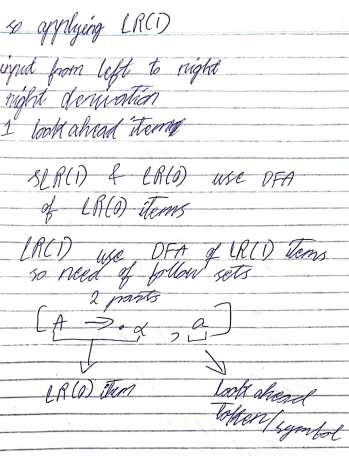 so applying LR(1)
input from left to right
right derivation
1 look ahead items
SLR(1) & LR(0) use DFA
of LR(0) items
LR(1) use DFA of LR(1) items
so need of follow sets
2 parts
[A → . α , a]
LR(0) item
Look ahead
token/symbol